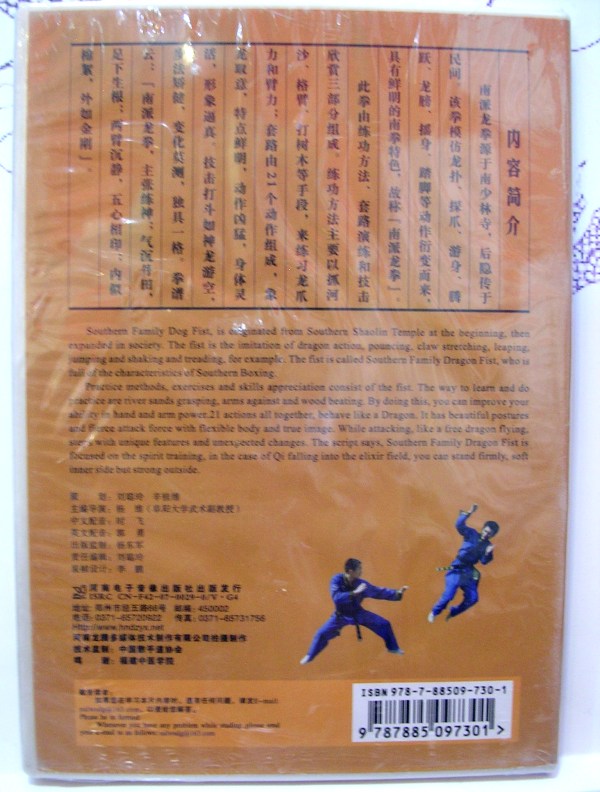 内容简介
南派龙拳源于南少林寺，后隐传于
民间。该拳模仿龙扑、探爪、游身、腾
跃、龙膀、摇身、踏脚等动作衍变而来，
具有鲜明的南拳特色，故称「南派龙拳」。
此拳由练功方法、套路演练和技击
欣赏三部分组成。练功方法主要以抓河
沙、格臂、打树木等手段，来练习龙爪
力和臂力；套路由21个动作组成，象
龙取意，特点鲜明，动作凶猛，身体灵
活，形象逼真，技击打斗如神龙游空，
步法矫健，变化莫测，独具一格。拳谱
云：「南派龙拳，主张练神；气沉丹田，
足下生根；两臂沉静，五心相印；内似
棉絮，外如金刚」。
Southern Family Dog Fist, is originated from Southern Shaolin Temple at the beginning, then
expanded in society. The fist is the imitation of dragon action, pouncing, claw stretching, leaping,
jumping and shaking and treading, for example. The fist is called Southern Family Dragon Fist, who is
full of the characteristics of Southern Boxing.
Practice methods, exercises and skills appreciation consist of the fist. The way to learn and do
practice are river sands grasping, arms against and wood beating. By doing this, you can improve your
ability in hand and arm power.21 actions all together, behave like a Dragon. It has beautiful postures
and fierce attack force with flexible body and true image. While attacking, like a free dragon flying,
steps with unique features and unexpected changes. The script says, Southern Family Dragon Fist is
focused on the spirit training, in the case of Qi falling into the elixir field, you can stand firmly, soft
inner side but strong outside.
策 划：刘聪玲
主编导演：杨 维（阜阳大学武术副教授）
中文配音：时 飞
英文配音：郭 勇
出版监制：杨东军
责任编辑：刘聪玲
装帧设计：李 鹏
河南电子音像出版社出版发行
ISRC CN-F42-07-0029-0/V·G4
地址：郑州市经五路66号 邮编：450002
电话：0371-65720922 传真：0371-65731756
Http://www.hndzys.net
河南龙腾多媒体技术制作有限公司拍摄制作
技术监制：中国散手道协会
鸣 谢：福建中医学院
敬告读者：
如果您在练习本片内容时，还有任何问题，请发E-mail
Please be so formed:
Whenever you have any problem while studing, please send
ISBN 978-7-88509-730-1
9 787885 097301 >